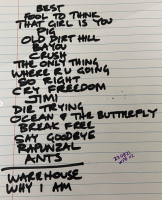 BEST
FOOL TO THINK
THAT GIRL IS YOU
PIG
OLD DIRT HILL
BAYOU
CRUSH
THE ONLY THING
WHERE R U GOING
SO RIGHT
CRY FREEDOM
JIMI
DIE TRYING
OCEAN & THE BUTTERFLY
BREAK FREE
SAY GOODBYE
RAPUNZAL
ANTS
WAREHOUSE
WHY I AM